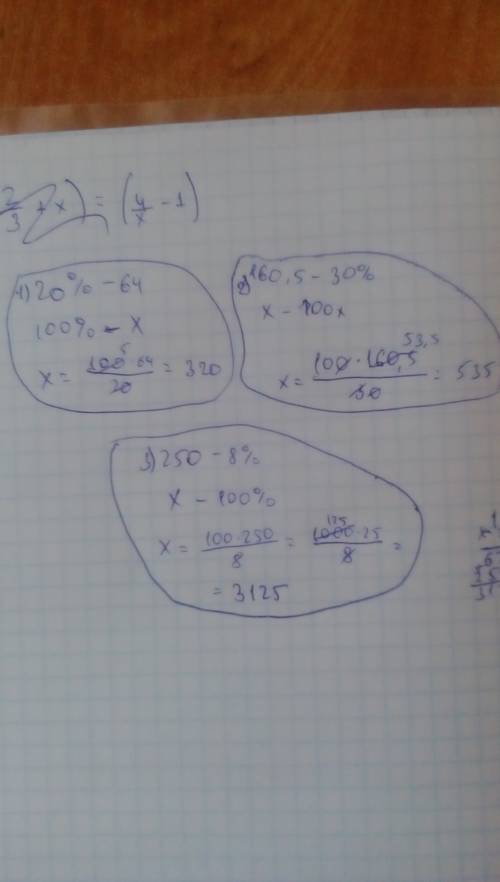 2/3 + x) = (y/x - 1)
1) 20% - 64
100% - x
x = 100 5 · 64 / 20 = 320
2) 160,5 - 30%
x - 100x
x = 100 · 160,5 53,5 / 30 = 535
3) 250 - 8%
x - 100%
x = 100·250 / 8 = 1000 125 · 25 / 8 =
= 3125